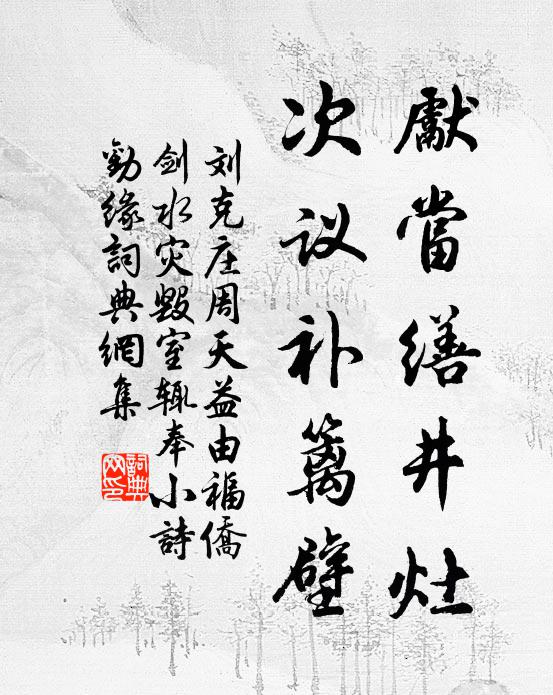 獻當繕井灶
次议补篱壁
刘克庄周天益由福僑
剑水灾毁室辄奉小詩
勁緣詞典網集
詞典
网印